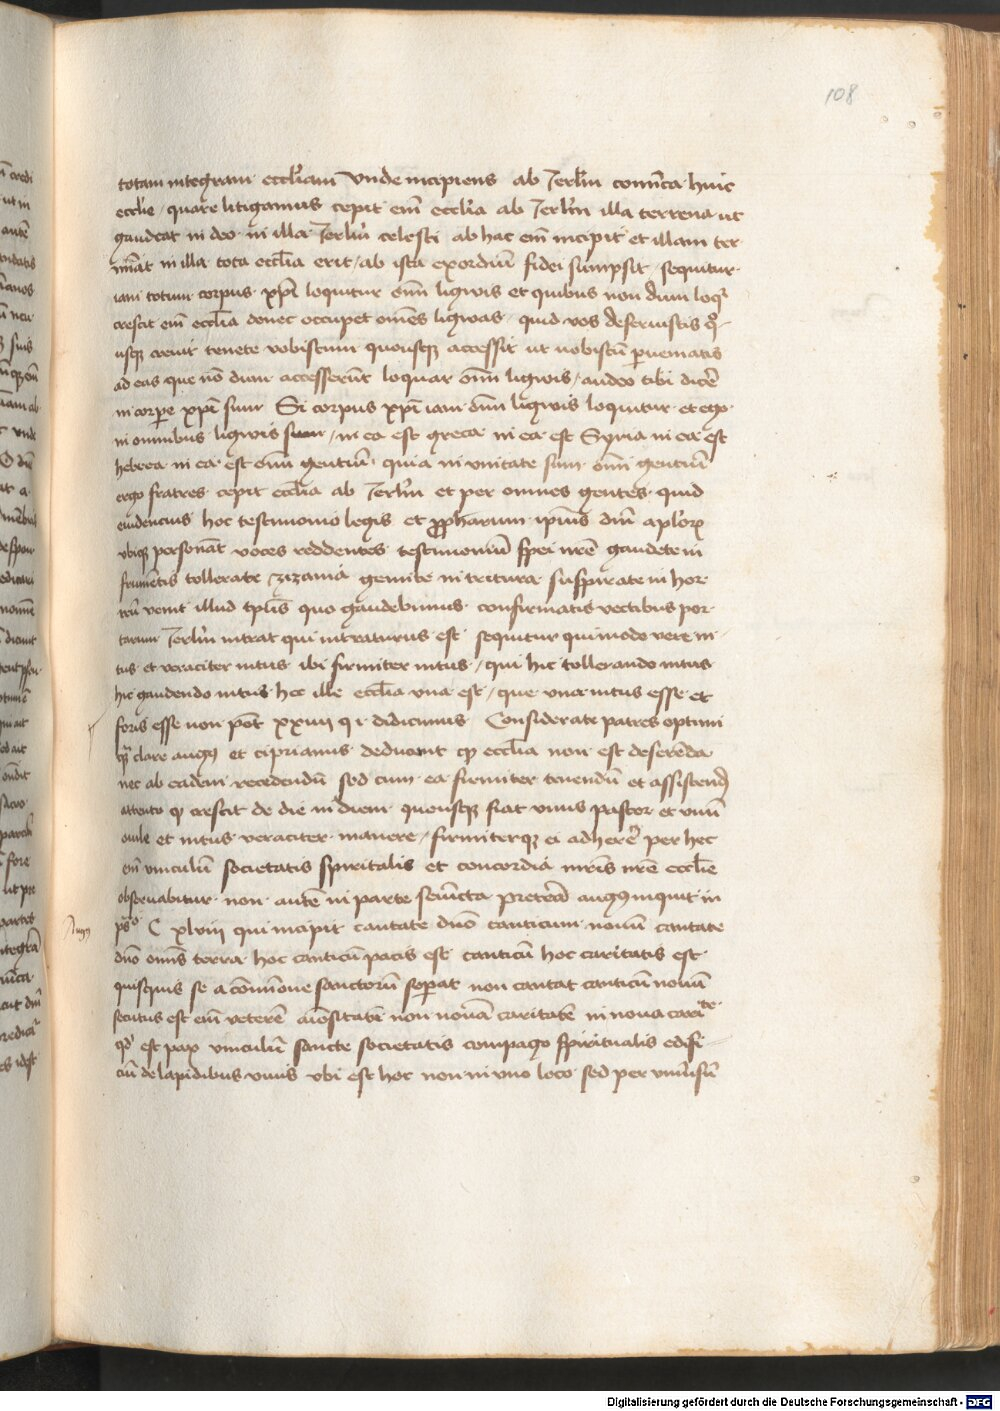 108
totam integram eccl'iam Vnde incipiens ab Jerl'm com̄ica huic
eccl'ie / quare litigamus cepit em̄ eccl'ia ab Jerl'm illa terrena ut
gaudeat in deo in illa Jerl'm celesti ab hac em̄ incipit et illam ter
mīat in illa tota eccl'ia erit / ab ista exordiū fidei sumpsit / sequitur
iam totum corpus xpī loquitur om̄i ligwis et quibus non dum loqr
crescit em̄ eccl'ia donec occupet om̄es ligwas quid vos deseruistis quo
usq̄ creuit tenete vobiscum quousq̄ accessit ut uobiscū pueniatis
ad eas que nō dum accesserūt loquar om̄i ligwis / audeo tibi dicēr
in corpe xpī sum Si corpus xpī iam om̄i ligwis loquitur et ego
in omnibus ligwis sum / mea est greca mea est Syria mea est
hebrea mea est om̄i gentiū quia in vnitate sum om̄i gentiū
ergo fratres cepit eccl'ia ab Jerl'm et per omnes gentes quid
euidencius hoc testimonio legis et propharum ipīus dn̄i apl'orz
vbiq̄ personāt voces reddentes testimoniū spei nr̄e gaudete in
frumētis tollerate zizania gemite in tritura suspirate in hor
reū venit illud tp̄us quo gaudebimus confirmatis vectibus por
tarum Jerl'm intrat qui intraturus est sequitur qui modo vere in
tus et veraciter intus ibi firmiter intus / qui hic tollerando intus
hic gaudendo intus hec ille eccl'ia vna est / que vna intus esse et
foris esse non pōt xxiiij q i didicimus Considerate patres optimi
q̄ clare augus et ciprianus deducūt qp eccl'ia non est deserēda
nec ab eadem recedendū sed cum ea firmiter tenendū et assistendū
attento qp crescit de die in diem quousq̄ fiat vnus pastor et vnū
ouile et intus veraciter manere / firmiterq̄ ei adherēr per hec
em̄ vinculū societatis spiritalis et concordia mr̄is nr̄e eccl'ie
obseruabitur non autē in parte seiūcta Pretea augus inquit in
Augus
ps̄o C xlviij qui incipit cantate dn̄o canticum nouū cantate
dn̄o om̄is terra hoc canticū pacis est canticū hoc caritatis est
quisquis se a com̄ione sanctorū sepat non cantat canticū nouū
secutus est em̄ veterē aīositatē non nouā caritatē in noua carite
qd est pax vinculū sancte societatis compago spiritualis edifi
ciū de lapidibus viuis vbi est hoc non in vno loco sed per vniūsū
Digitalisierung gefördert durch die Deutsche Forschungsgemeinschaft - DFG